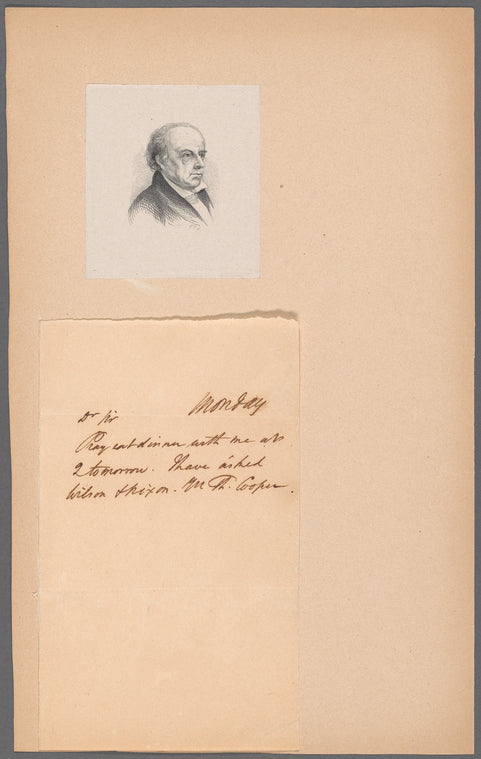 Monday
Dr Sir
Pray eat dinner with me at
2 tomorrow. I have asked
Wilson & Nixon. Th. Cooper.